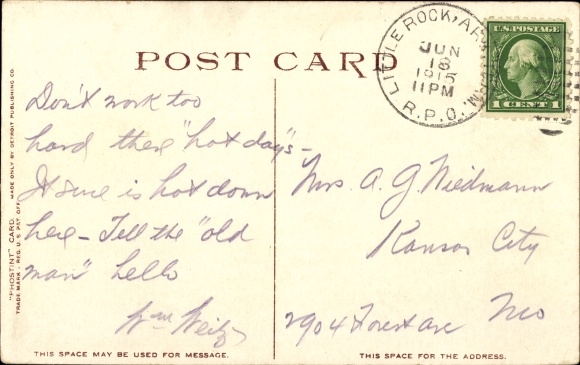 POST CARD
LITTLE ROCK, AR
JUN
18
1915
11PM
R.P.O.
U.S. POSTAGE
1 CENT 1
Don't work too
hard these "hot days"-
It sure is hot down
here - Tell the "old
man" hello
Wm
Mrs. A. G. Niedmann
Kansas City
Mo
2904 Forest ave
"PHOSTINT" CARD
MADE ONLY BY DETROIT PUBLISHING CO.
TRADE MARK - REG. U.S. PAT. OFF.
THIS SPACE MAY BE USED FOR MESSAGE.
THIS SPACE FOR THE ADDRESS.